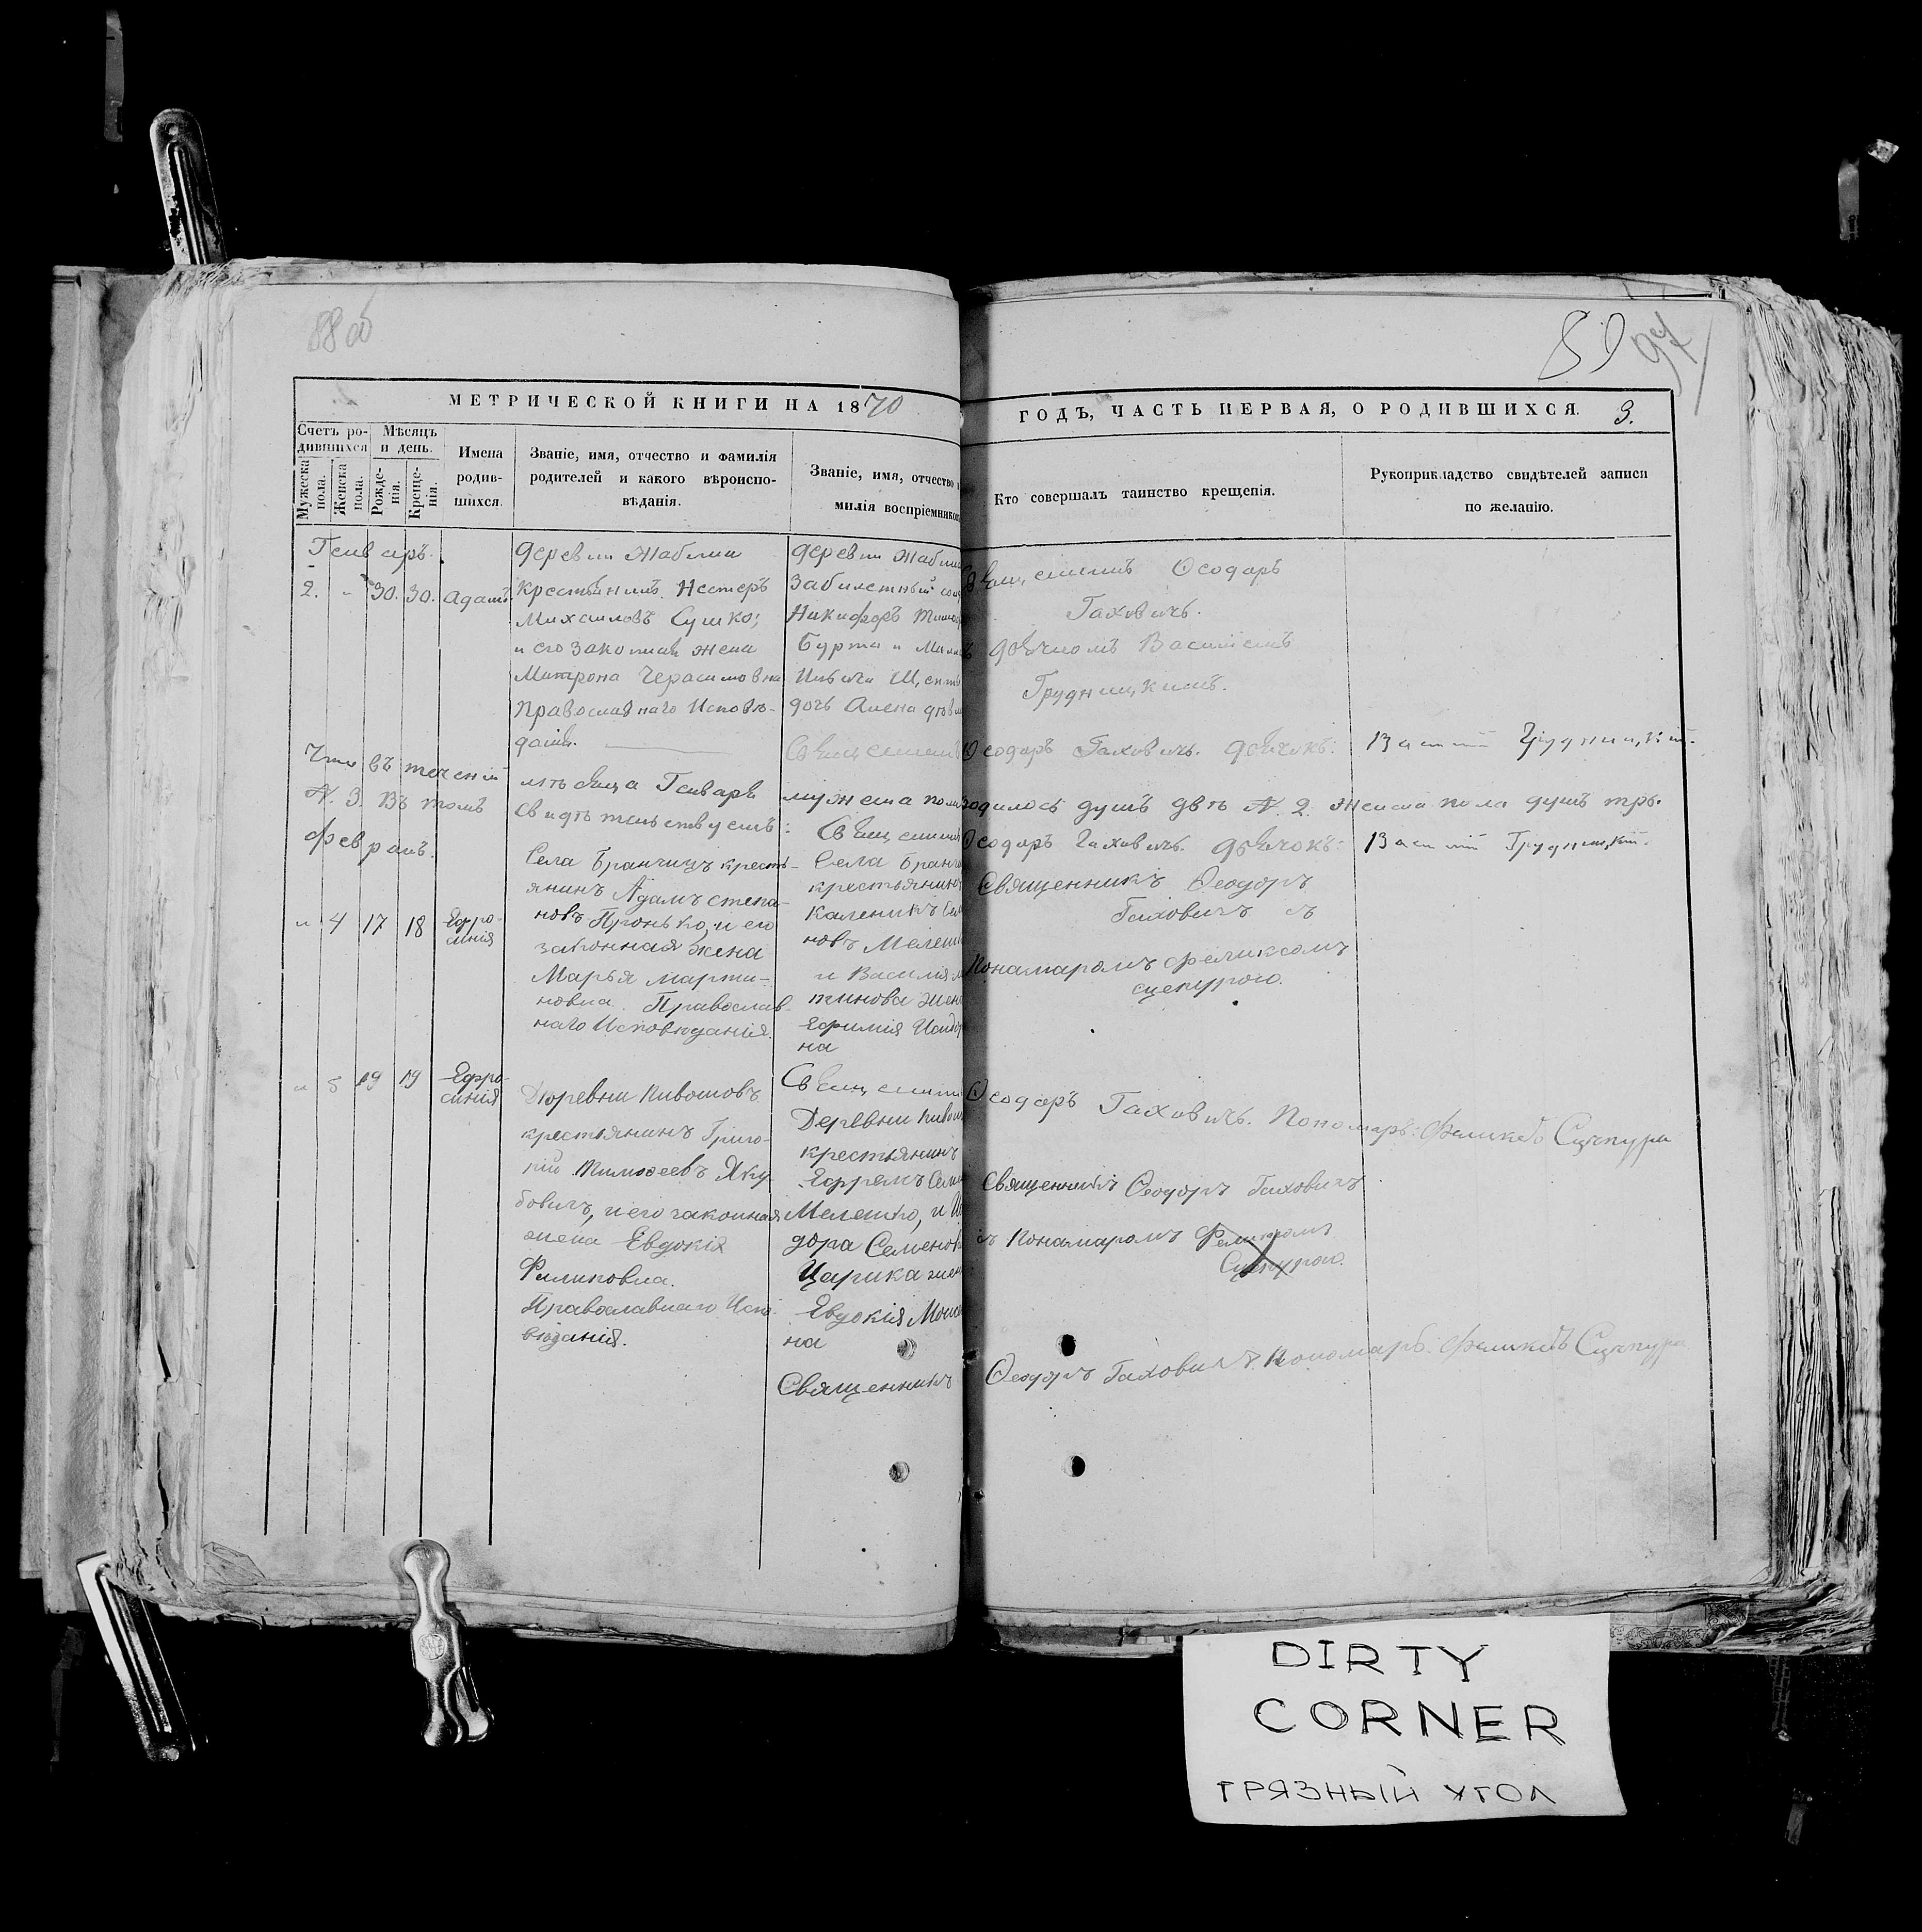 88 об
89 97
МЕТРИЧЕСКОЙ КНИГИ НА 1870
ГОДЪ, ЧАСТЬ ПЕРВАЯ, О РОДИВШИХСЯ. 3.
Счетъ ро-
дившихся
Мужеска
пола.
Женска
пола.
Мѣсяцъ
и день.
Рожде-
нія.
Креще-
нія.
Имена
родив-
шихся.
Званіе, имя, отчество и фамилія
родителей и какого вѣроиспо-
вѣданія.
Званіе, имя, отчество
милія воспріемников
Кто совершалъ таинство крещенія.
Рукоприкладство свидѣтелей записи
по желанію.
Генварь.
2. 30. 30. Адамъ.
деревни Жабина
крестьянинъ Нестеръ
Михаиловъ Сушко;
и его законная жена
Матрона Герасимовна
Православнаго Исповѣ-
данія.
деревни Жабин
Забилетный
Никифоръ
Бурта и
дочь Алена
Священникъ Ѳеодоръ
Гаховичъ.
дьячкомъ Василіемъ
Грудницкимъ.
Священникъ Ѳеодоръ Гаховичъ. дьячокъ: Василій Грудницкій.
Что въ теченіи мѣсяца Генваря мужеска пола родилось душъ двѣ №. 2. Женска пола душъ три.
№. 3. Въ томъ свидѣтельствуемъ: Священникъ Ѳеодоръ Гаховичъ. дьячокъ: Василій Грудницкій.
Февраль.
4 17 18 Ефро-
синія
Села Бранчицъ кресть-
янинъ Адамъ Степа-
новъ Пронько, и его
законная жена
Марья Марти-
новна. Православ-
наго Исповѣданія.
Села Бранч
крестьянинъ
Каленикъ
новъ
и Василія
тинова жена
Ефимія
на
Священникъ Ѳеодоръ
Гаховичъ съ
Понамаромъ Феликсомъ
Сцепурою.
Священникъ Ѳеодоръ Гаховичъ. Пономарь: Феликсъ Сцепура
5 19 19 Ефро-
синія
Деревни Кивошовъ
крестьянинъ Григо-
рій Тимоѳеевъ Яку-
бовичъ, и его законная
жена Евдокія
Филиповна.
Православнаго Испо-
вѣданія.
Деревни
крестьянинъ
Ефремъ
Мелешко, и
дора Семенов
Царика жен
Евдокія
на
Священникъ Ѳеодоръ Гаховичъ
съ Понамаромъ Феликсомъ
Сцепурою.
Священникъ Ѳеодоръ Гаховичъ. Пономарь: Феликсъ Сцепура
DIRTY
CORNER
ГРЯЗНЫЙ УГОЛ